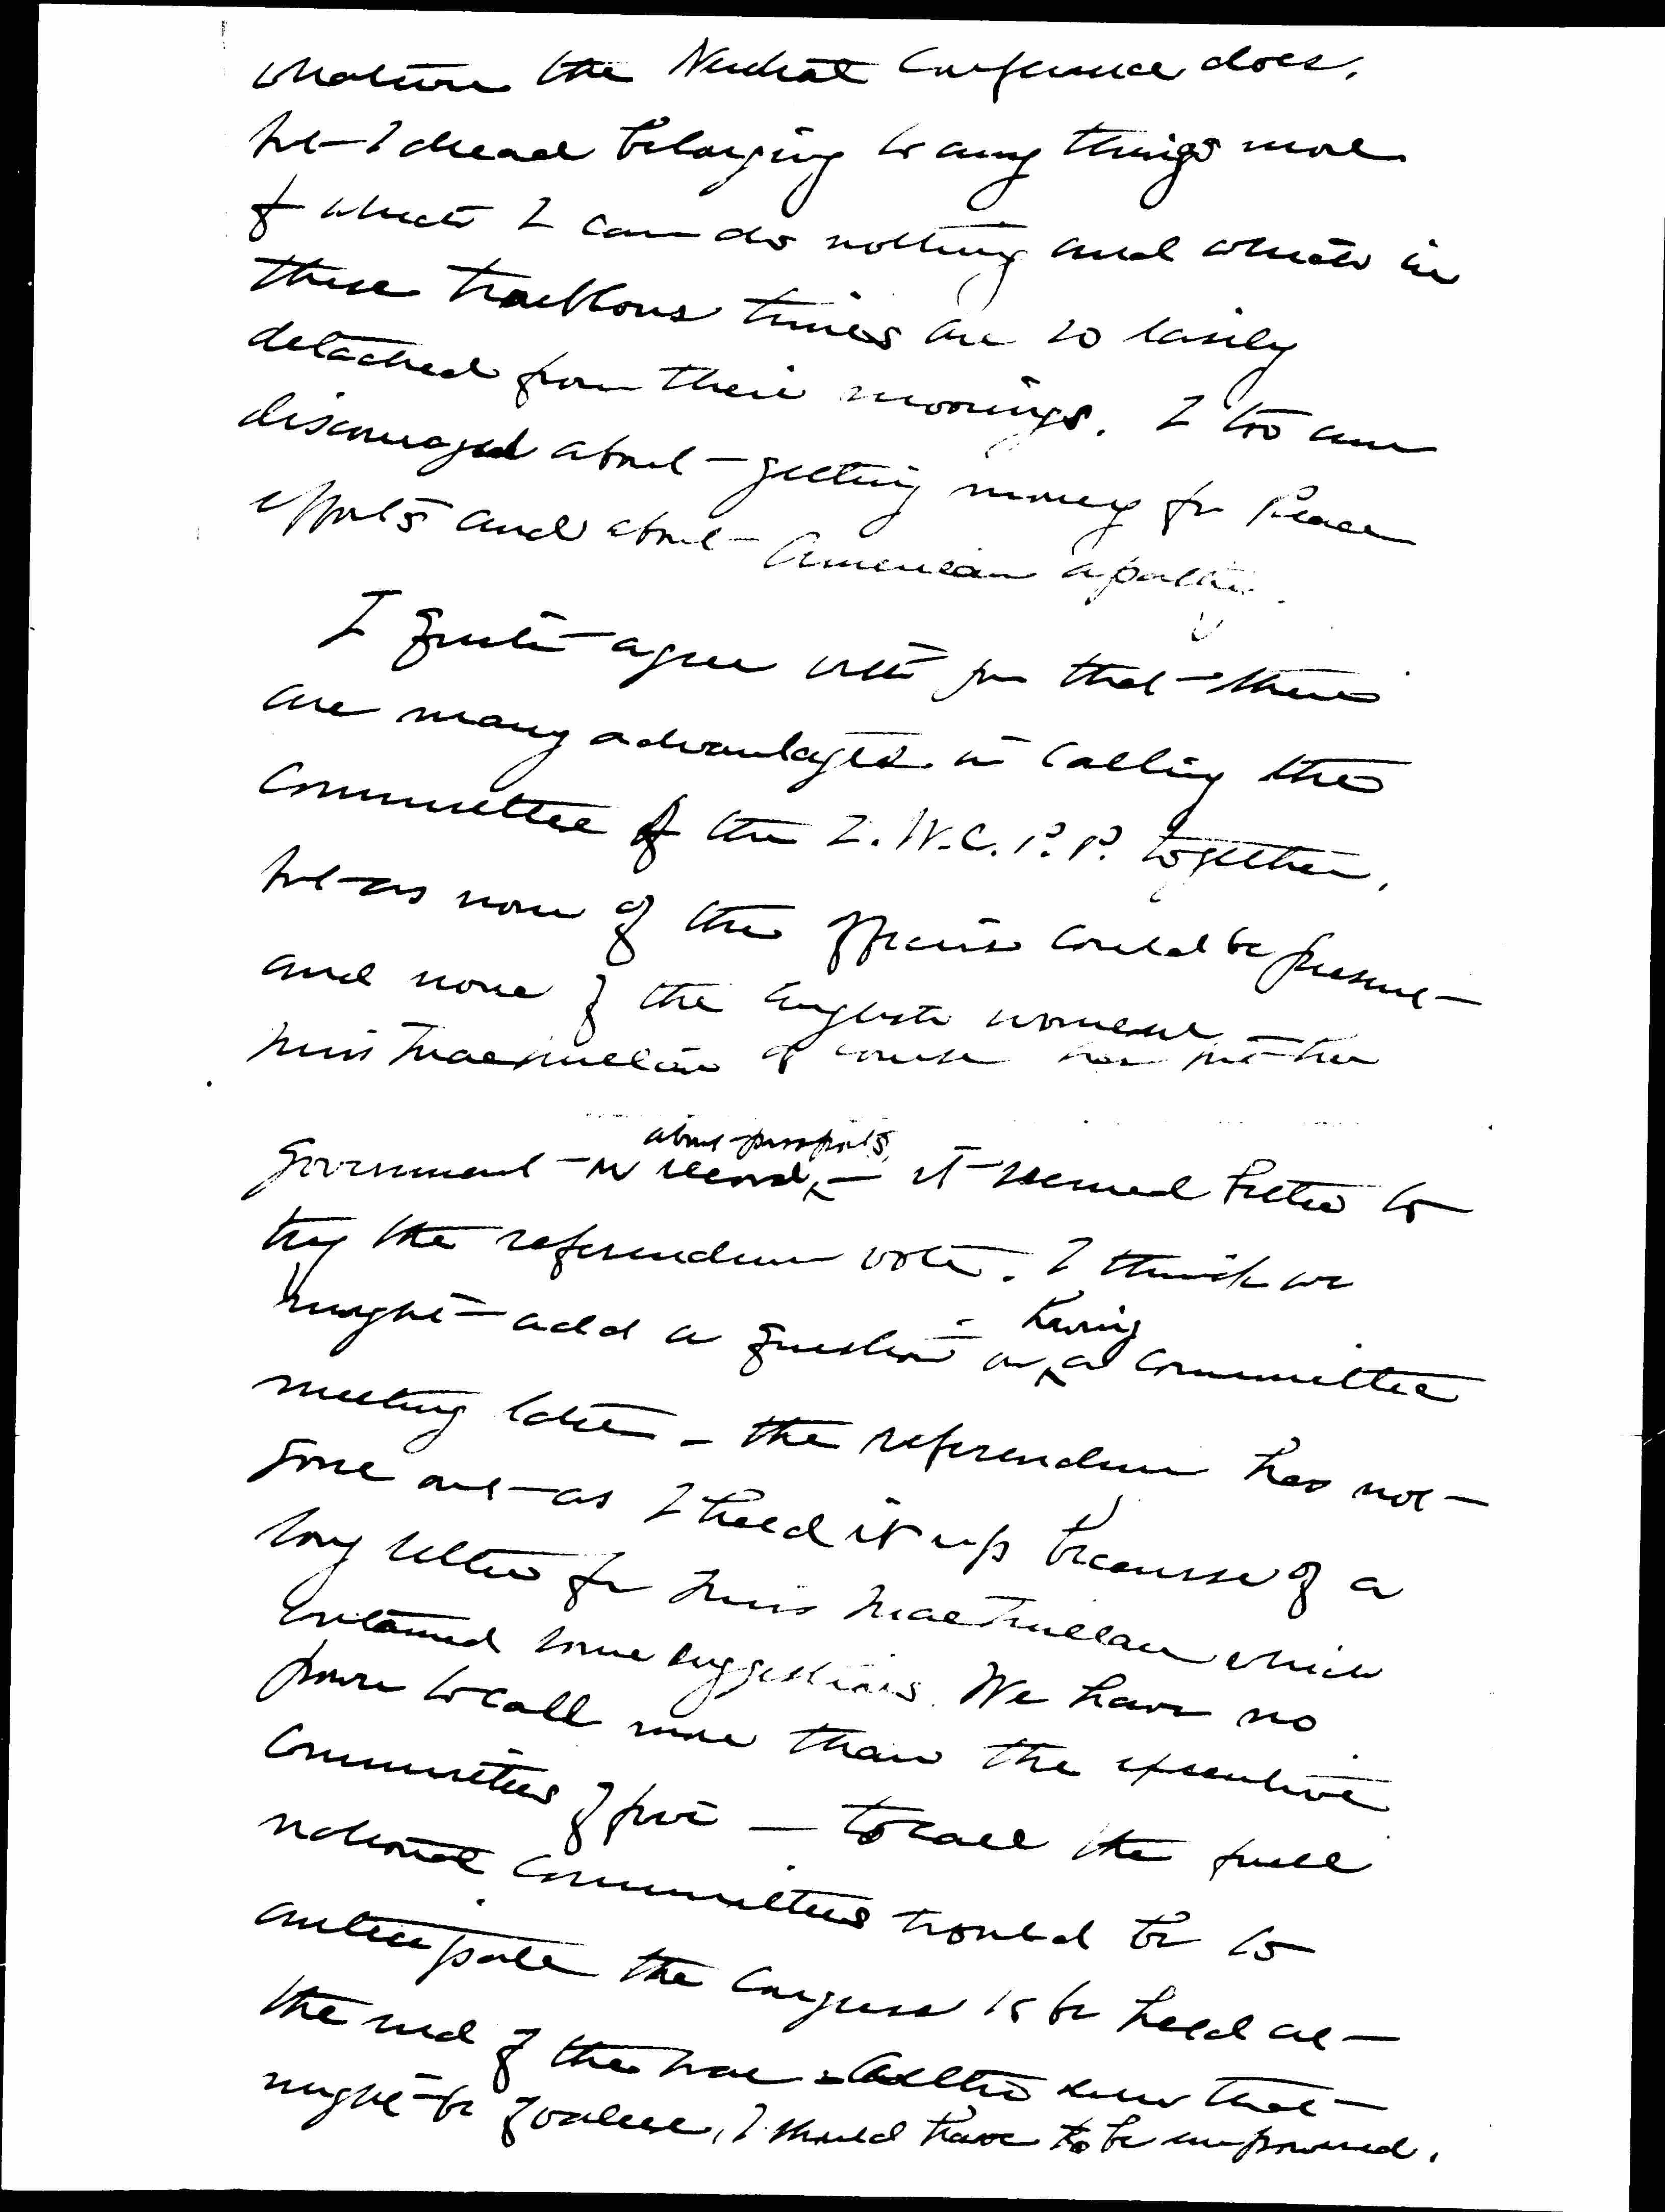 whatever the Neutral Conference does,
but I dread belonging to any things more
of which I can do nothing and which in
these troublous times are so easily
detached from their moorings. I too am
discouraged about getting money for Peace
efforts and about American apathy.
I quite agree with you that there
are many advantages in calling the
Committee of the I.W.C.P.P. together,
but as none of the officers could be present
and none of the English women
Miss Macmillan of course has put her
about passports,
Government on record, it seemed better to
try the referendum vote. I think we
having
might add a question on a Committee
meeting later – the referendum has not
gone out as I held it up because of a
long letter fr Miss MacMillan which
contained some suggestions. We have no
power to call more than the executive
Committee of five – to call the full
national Committees would be to
anticipate the Congress to be held at
the end of the war. that
might be of value, I should have to be empowered.